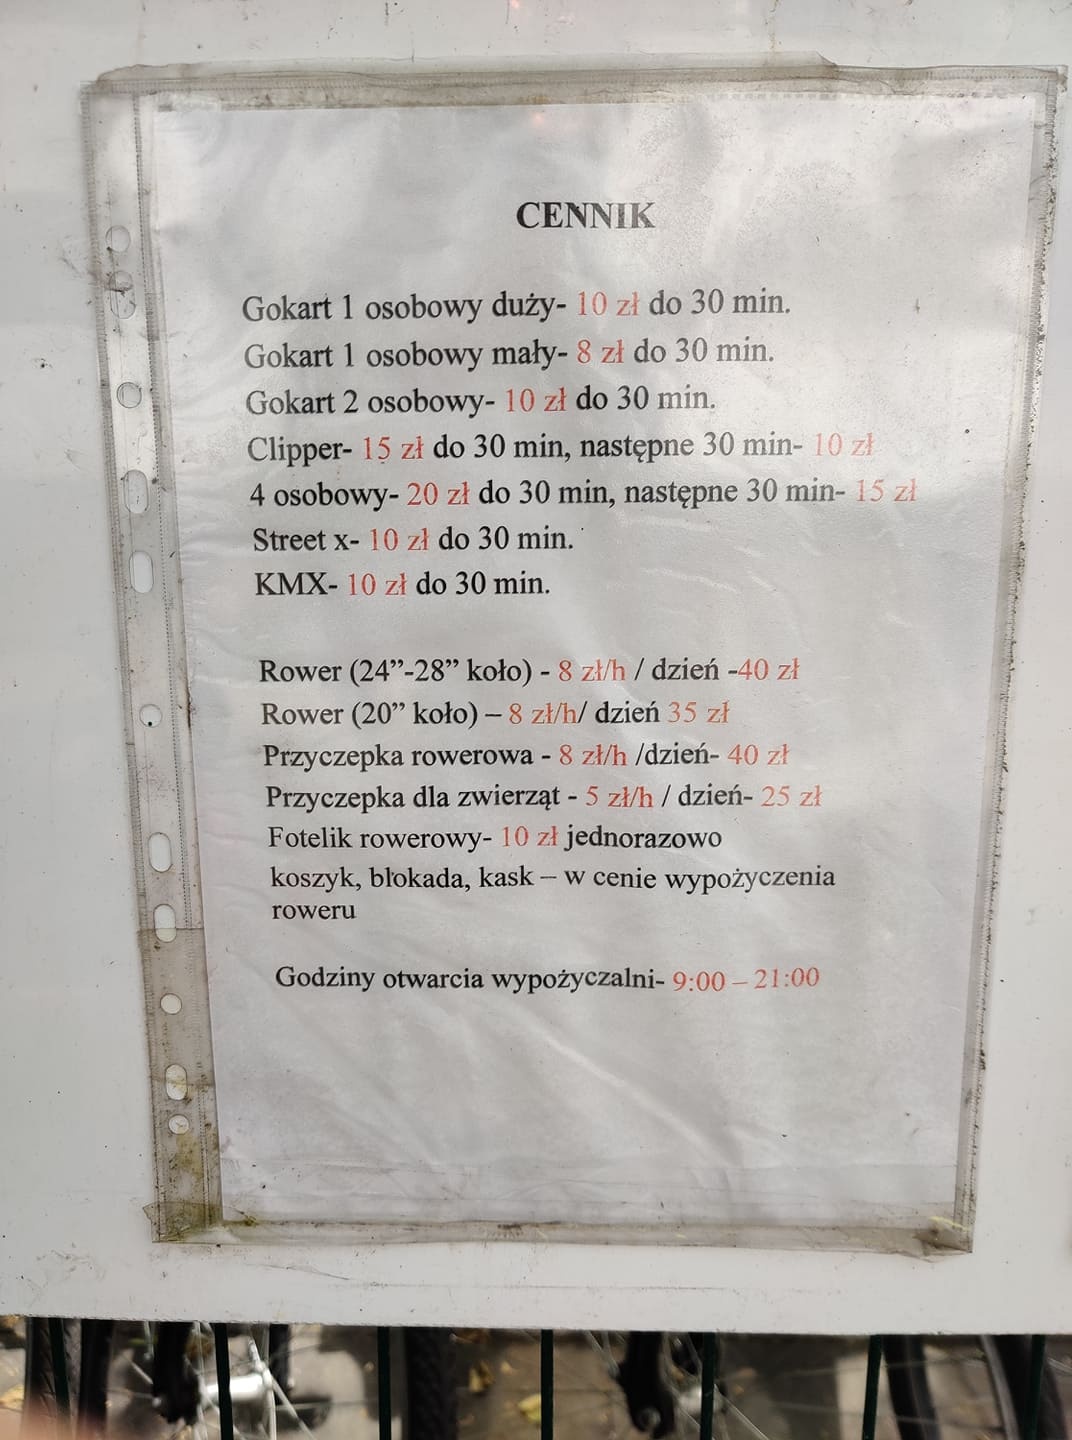 CENNIK
Gokart 1 osobowy duży- 10 zł do 30 min.
Gokart 1 osobowy mały- 8 zł do 30 min.
Gokart 2 osobowy- 10 zł do 30 min.
Clipper- 15 zł do 30 min, następne 30 min- 10 zł
4 osobowy- 20 zł do 30 min, następne 30 min- 15 zł
Street x- 10 zł do 30 min.
KMX- 10 zł do 30 min.
Rower (24”-28” koło) - 8 zł/h / dzień -40 zł
Rower (20” koło) – 8 zł/h/ dzień 35 zł
Przyczepka rowerowa - 8 zł/h /dzień- 40 zł
Przyczepka dla zwierząt - 5 zł/h / dzień- 25 zł
Fotelik rowerowy- 10 zł jednorazowo
koszyk, blokada, kask – w cenie wypożyczenia
roweru
Godziny otwarcia wypożyczalni- 9:00 – 21:00